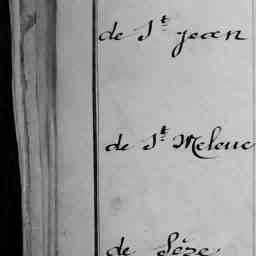 de S^t jean
de S^t Melene
de Sèze